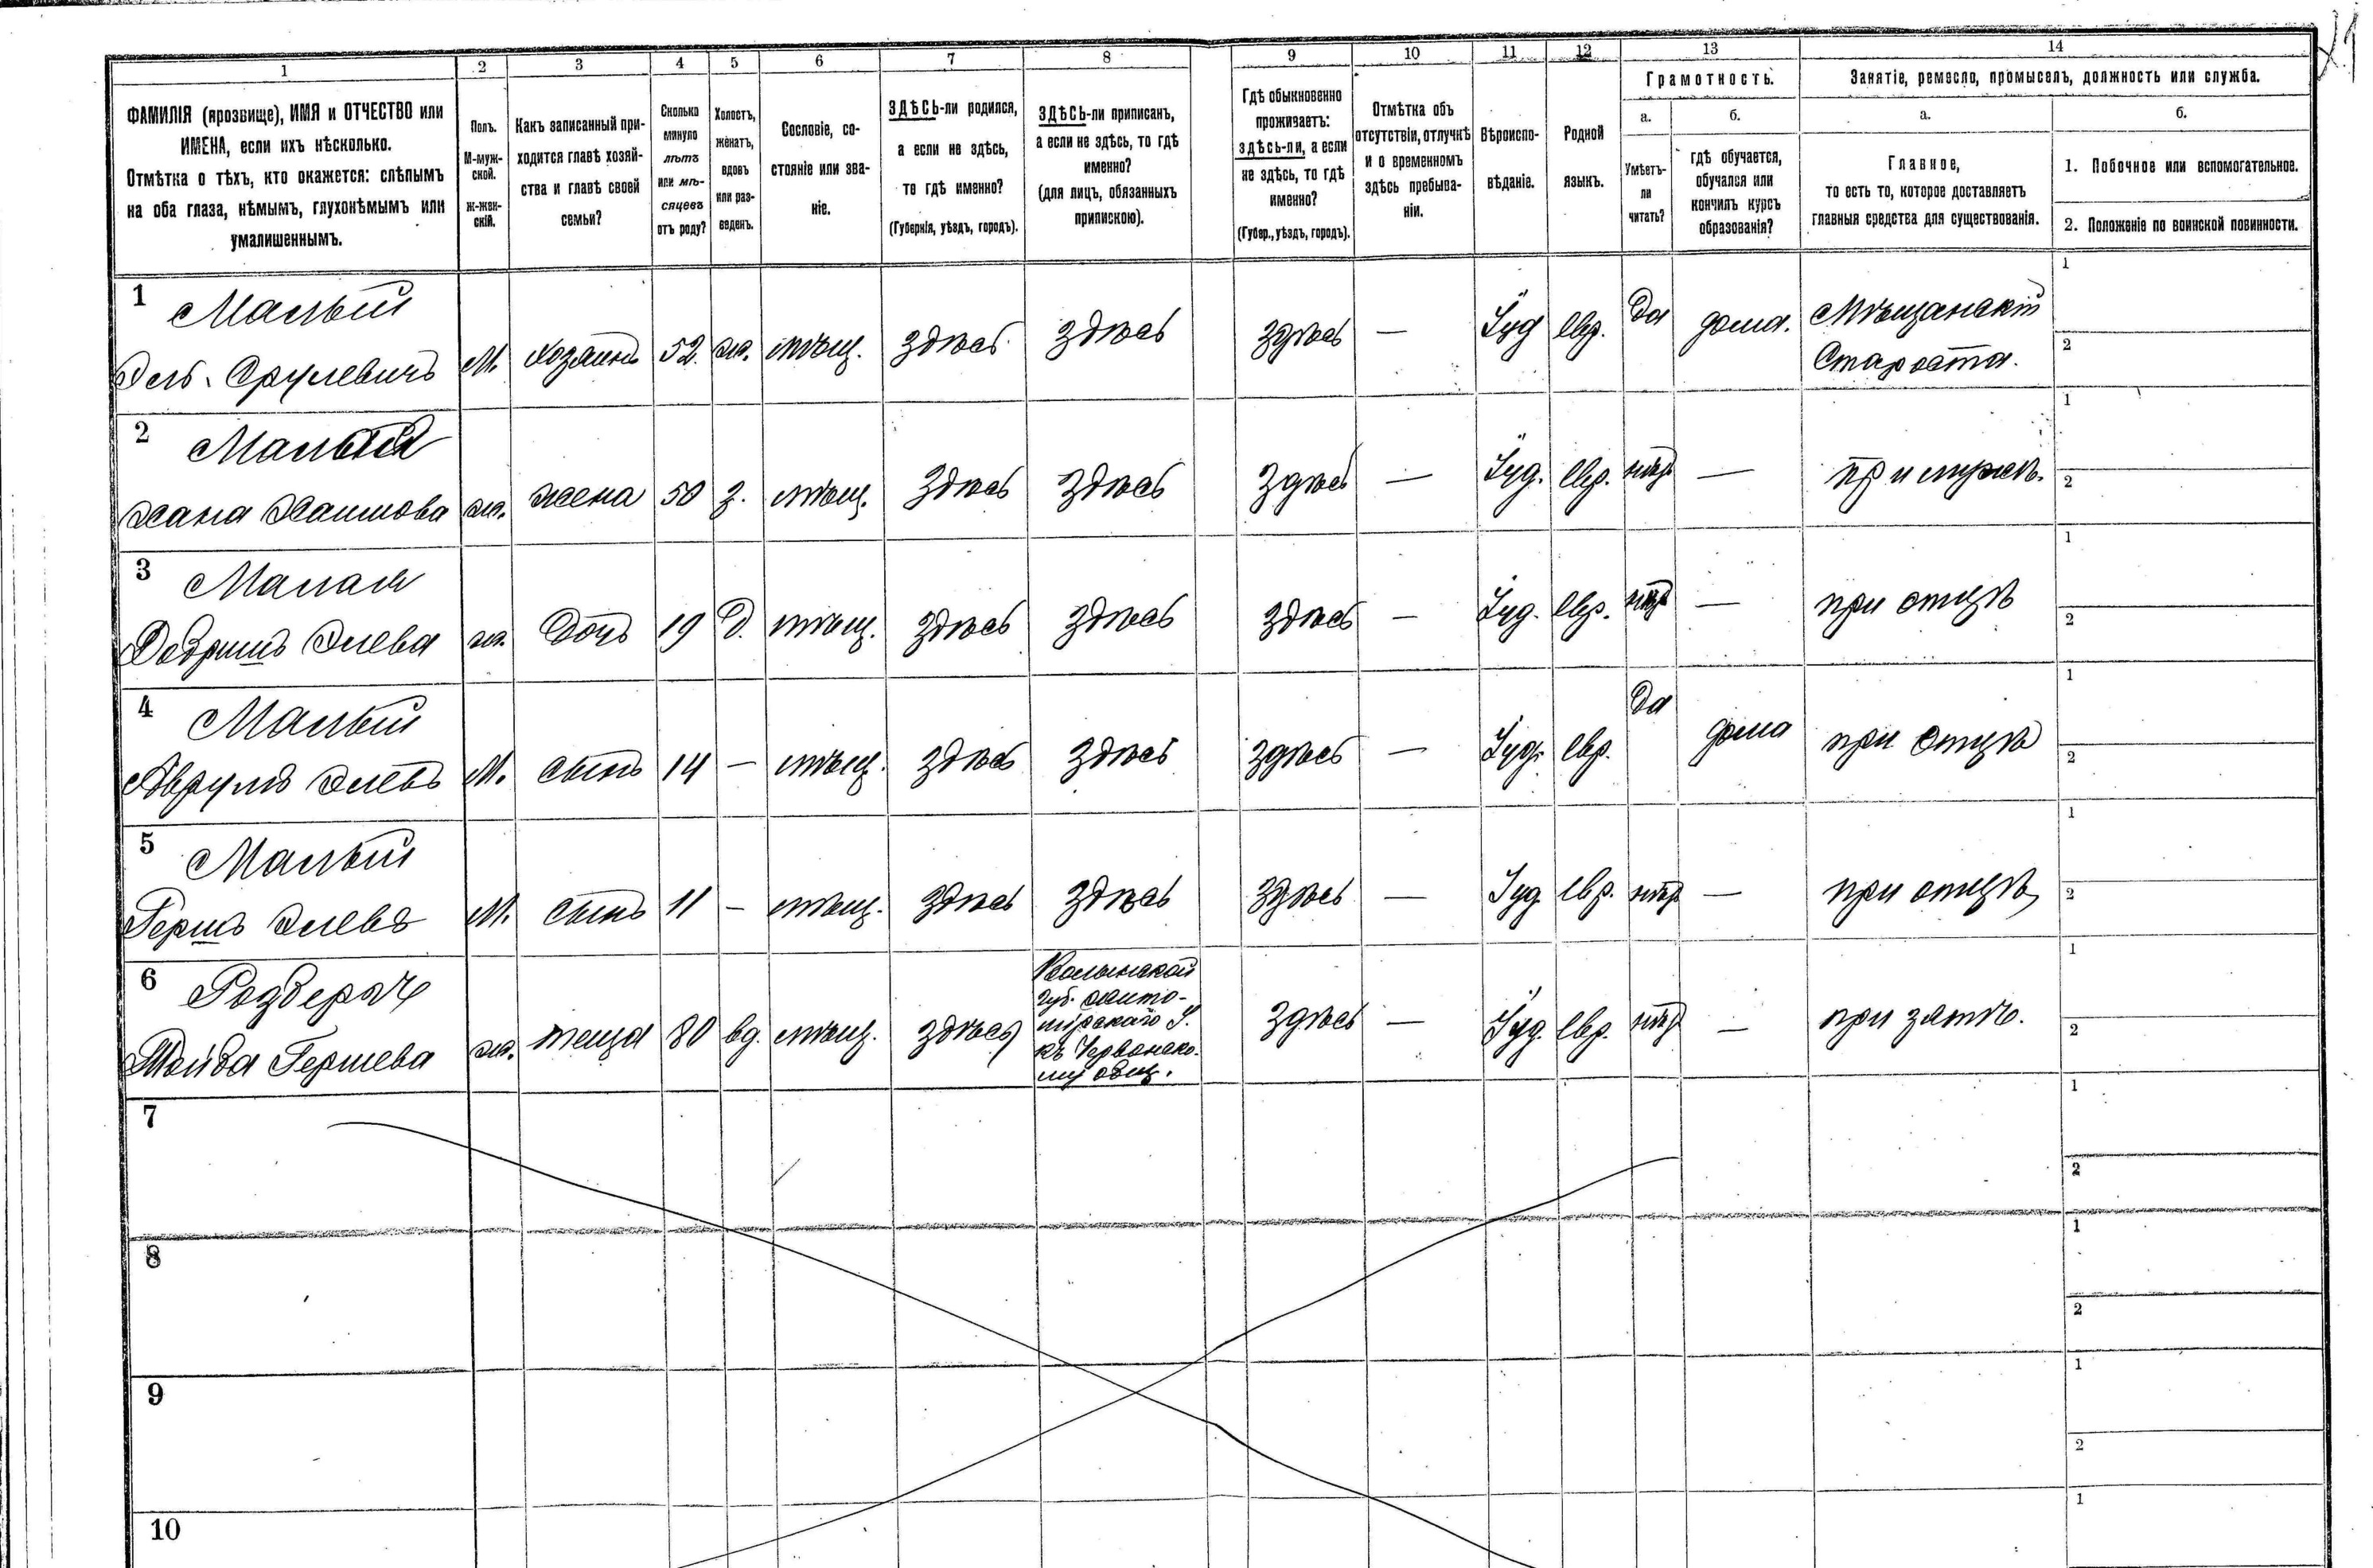 1 2 3 4 5 6 7 8 9 10 11 12 13 14
ФАМИЛІЯ (прозвище), ИМЯ и ОТЧЕСТВО или
ИМЕНА, если ихъ нѣсколько.
Отмѣтка о тѣхъ, кто окажется: слѣпымъ
на оба глаза, нѣмымъ, глухонѣмымъ или
умалишеннымъ.
Полъ.
М-муж-
ской.
Ж-жен-
скій.
Какъ записанный при-
ходится главѣ хозяй-
ства и главѣ своей
семьи?
Сколько
минуло
лѣтъ
или мѣ-
сяцевъ
отъ роду?
Холостъ,
женатъ,
вдовъ
или раз-
веденъ.
Сословіе, со-
стояніе или зва-
ніе.
ЗДѢСЬ-ли родился,
а если не здѣсь,
то гдѣ именно?
(Губернія, уѣздъ, городъ).
ЗДѢСЬ-ли приписанъ,
а если не здѣсь, то гдѣ
именно?
(для лицъ, обязанныхъ
припискою).
Гдѣ обыкновенно
проживаетъ:
здѣсь-ли, а если
не здѣсь, то гдѣ
именно?
(Губер., уѣздъ, городъ).
Отмѣтка объ
отсутствіи, отлучкѣ
и о временномъ
здѣсь пребыва-
ніи.
Вѣроиспо-
вѣданіе.
Родной
языкъ.
Грамотность.
а.
Умѣетъ-
ли
читать?
б.
гдѣ обучается,
обучался или
кончилъ курсъ
образованія?
Занятіе, ремесло, промыселъ, должность или служба.
а.
Главное,
то есть то, которое доставляетъ
главныя средства для существованія.
б.
1. Побочное или вспомогательное.
2. Положеніе по воинской повинности.
1 Малый
Эль. Срулевичъ М. хозяинъ 52. ж. мѣщ. здѣсь здѣсь здѣсь — Іуд евр. Да дома. Мѣщанскій
Староста.
1
2
2 Малая
Хана Хаимова ж. жена 50 з. мѣщ. здѣсь здѣсь здѣсь — Іуд. евр. нѣтъ — при мужѣ.
1
2
3 Малая
Добришъ Элева ж. Дочь 19 Д. мѣщ. здѣсь здѣсь здѣсь — Іуд. евр. нѣтъ — при отцѣ
1
2
4 Малый
Аврумъ Элевъ М. сынъ 14 — мѣщ. здѣсь здѣсь здѣсь — Іуд. евр. Да дома при отцѣ
1
2
5 Малый
Гершъ Элевъ М. сынъ 11 — мѣщ. здѣсь здѣсь здѣсь — Іуд евр. нѣтъ — при отцѣ
1
2
6
Гершева ж. теща 80 вд. мѣщ. здѣсь
Волынской
губ. Жито-
мірскаго у.
къ Червонско-
му общ.
здѣсь — Іуд. евр. нѣтъ — при зятѣ.
1
2
7
1
2
8
1
2
9
1
2
10
1